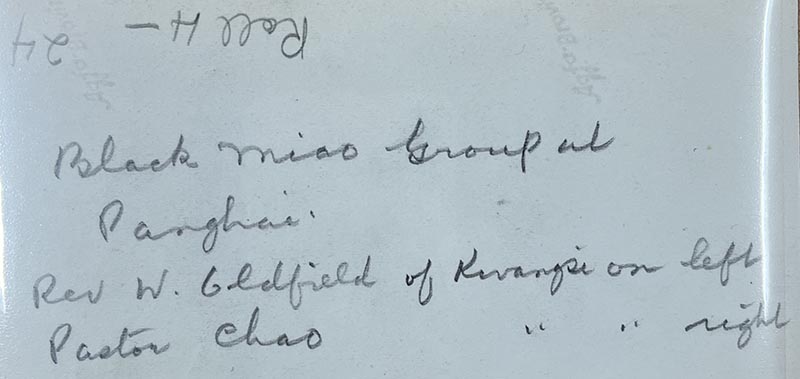 Roll 4 - 24
Black Miao Group at
Panghai.
Rev W. Oldfield of Kwangsi on left
Pastor Chao " " right